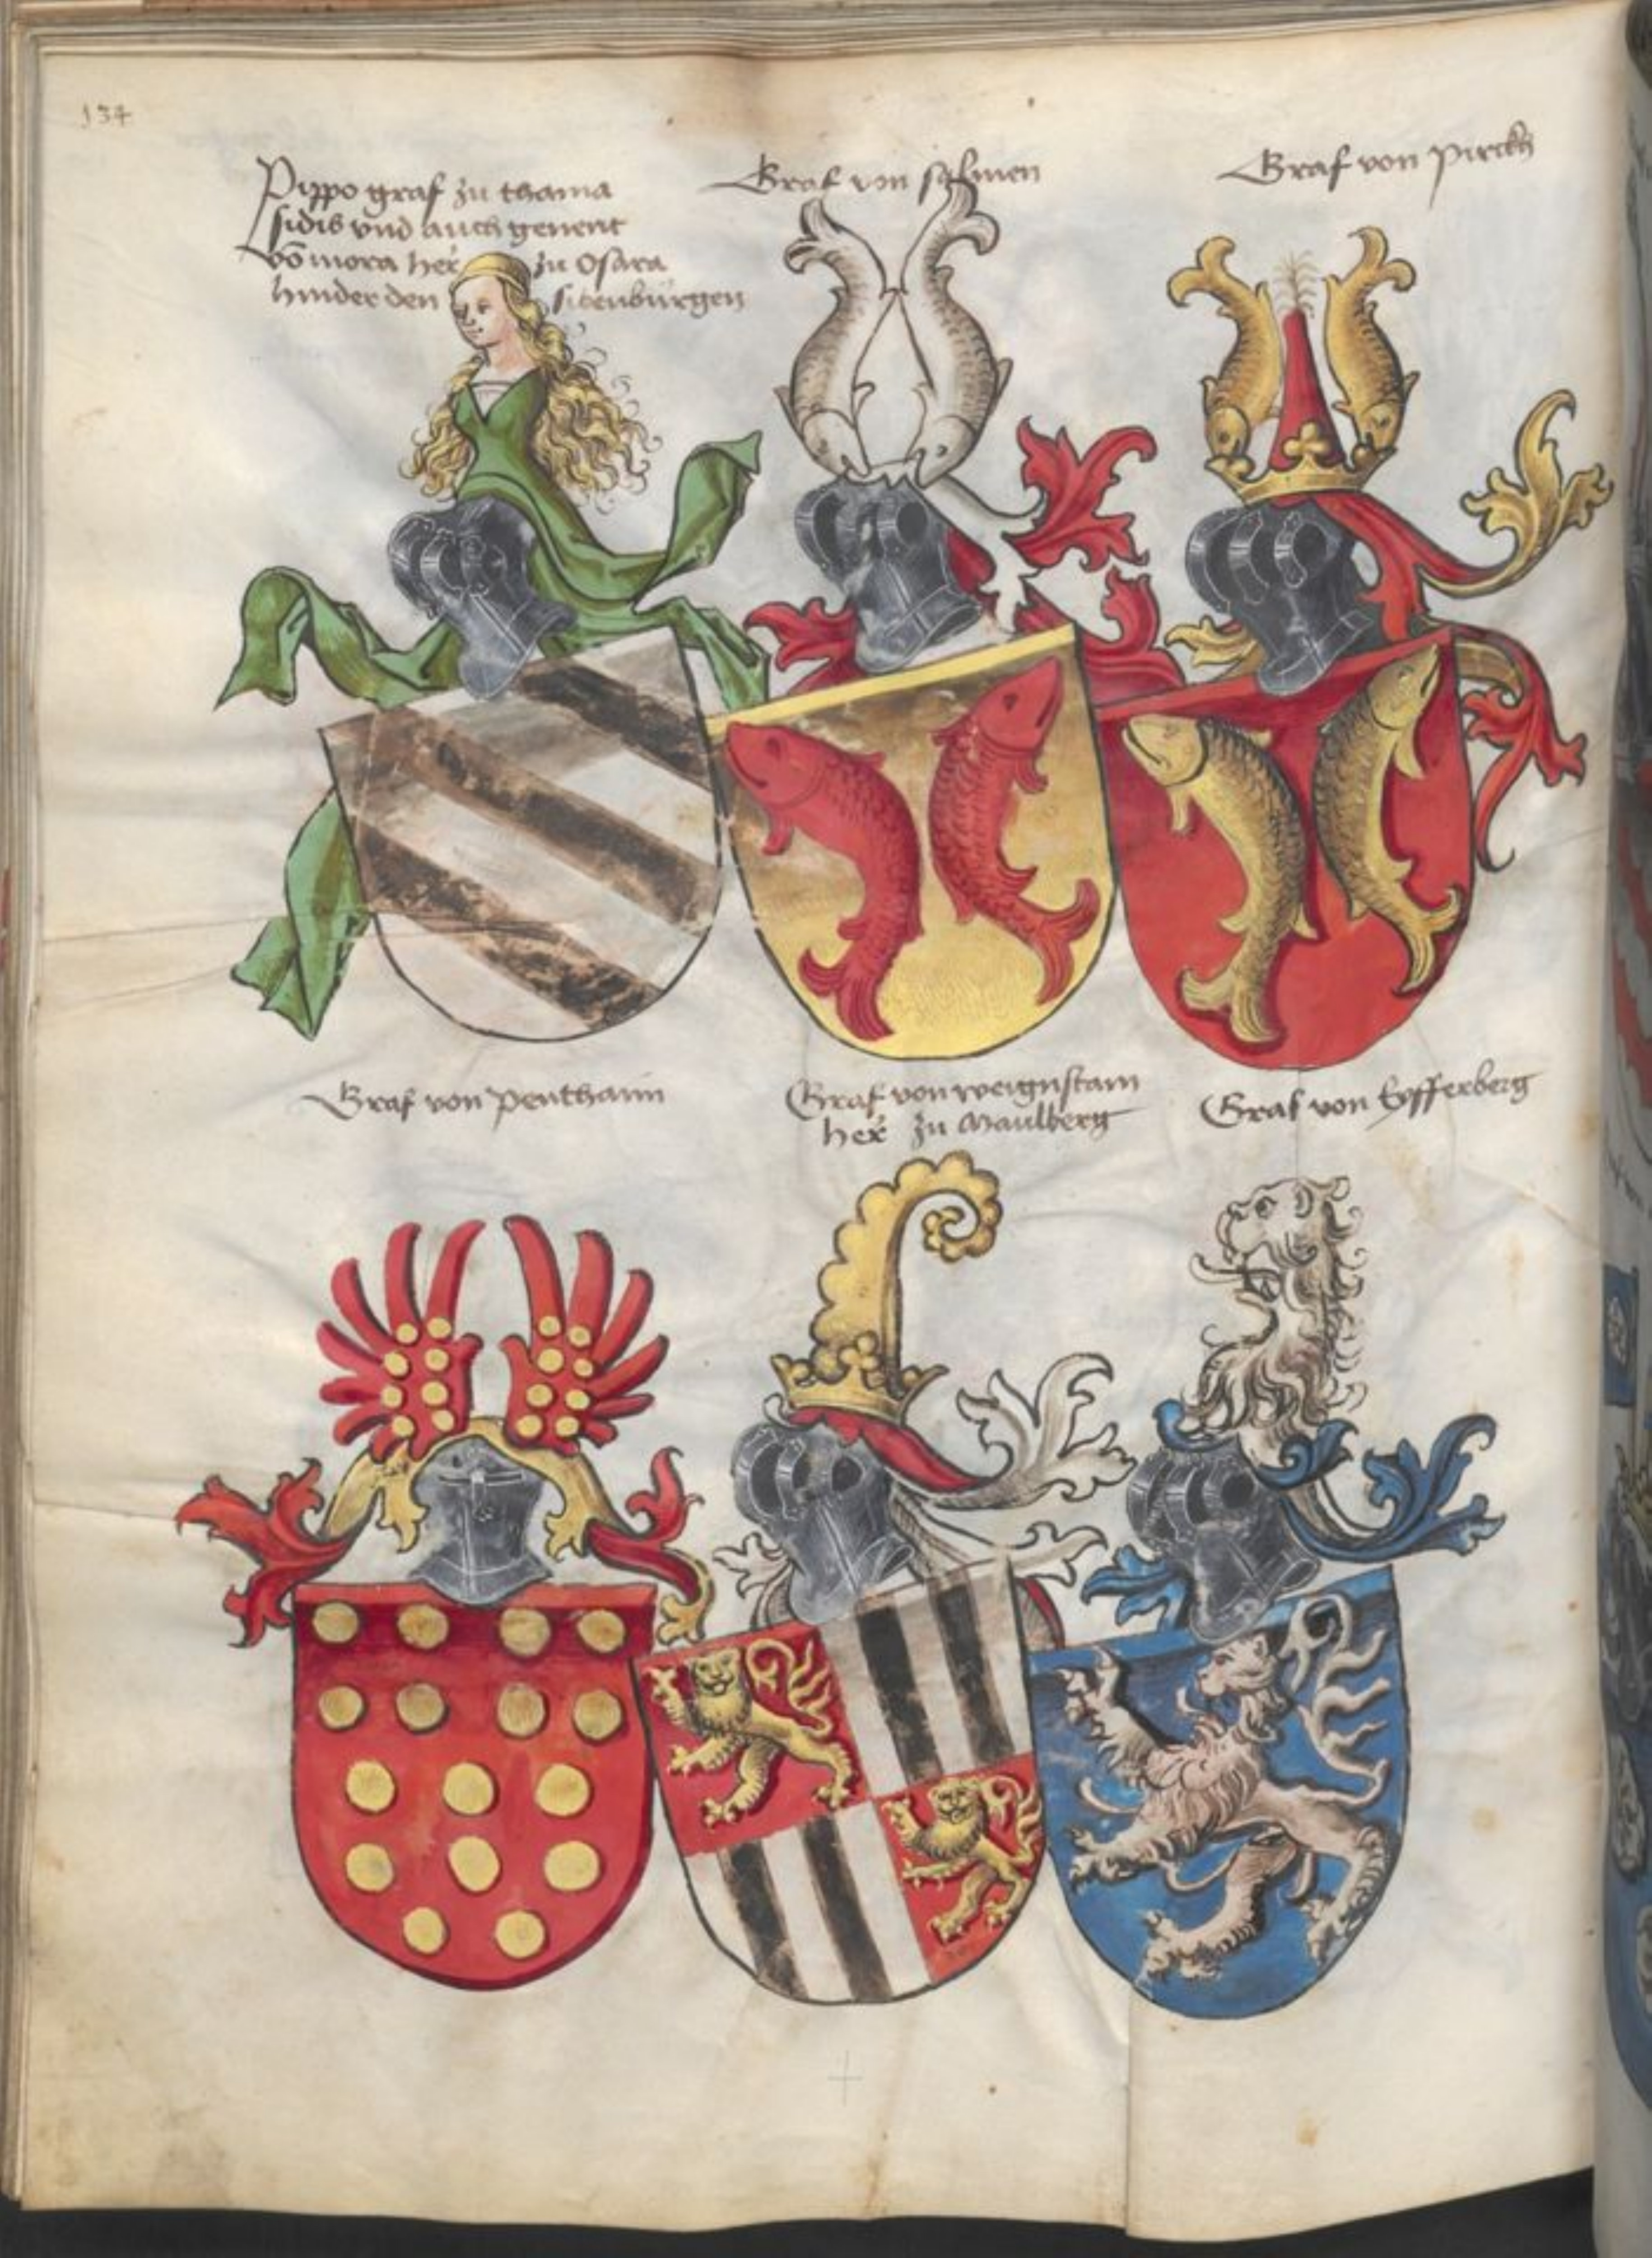 134
Pippo graf zu thama
sidis vnd auch genent
võ mora her zu Osara
hinder den sibenbürgen
Graf von salmen
Graf von pirckh
Graf von penthaim
Graf von weignstain
her zu Maulberg
Graf von Eofferberg